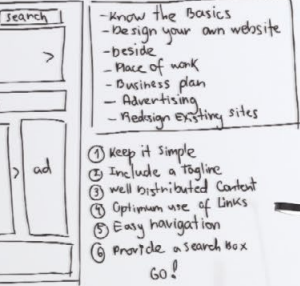 search
>
- Know the Basics
- Design your own website
- beside
- Place of work
- Business plan
- Advertising
- Redesign Existing sites
> ad
① Keep it simple
② Include a Tagline
③ Well Distributed Content
④ Optimum use of Links
⑤ Easy navigation
⑥ Provide a search Box
GO!